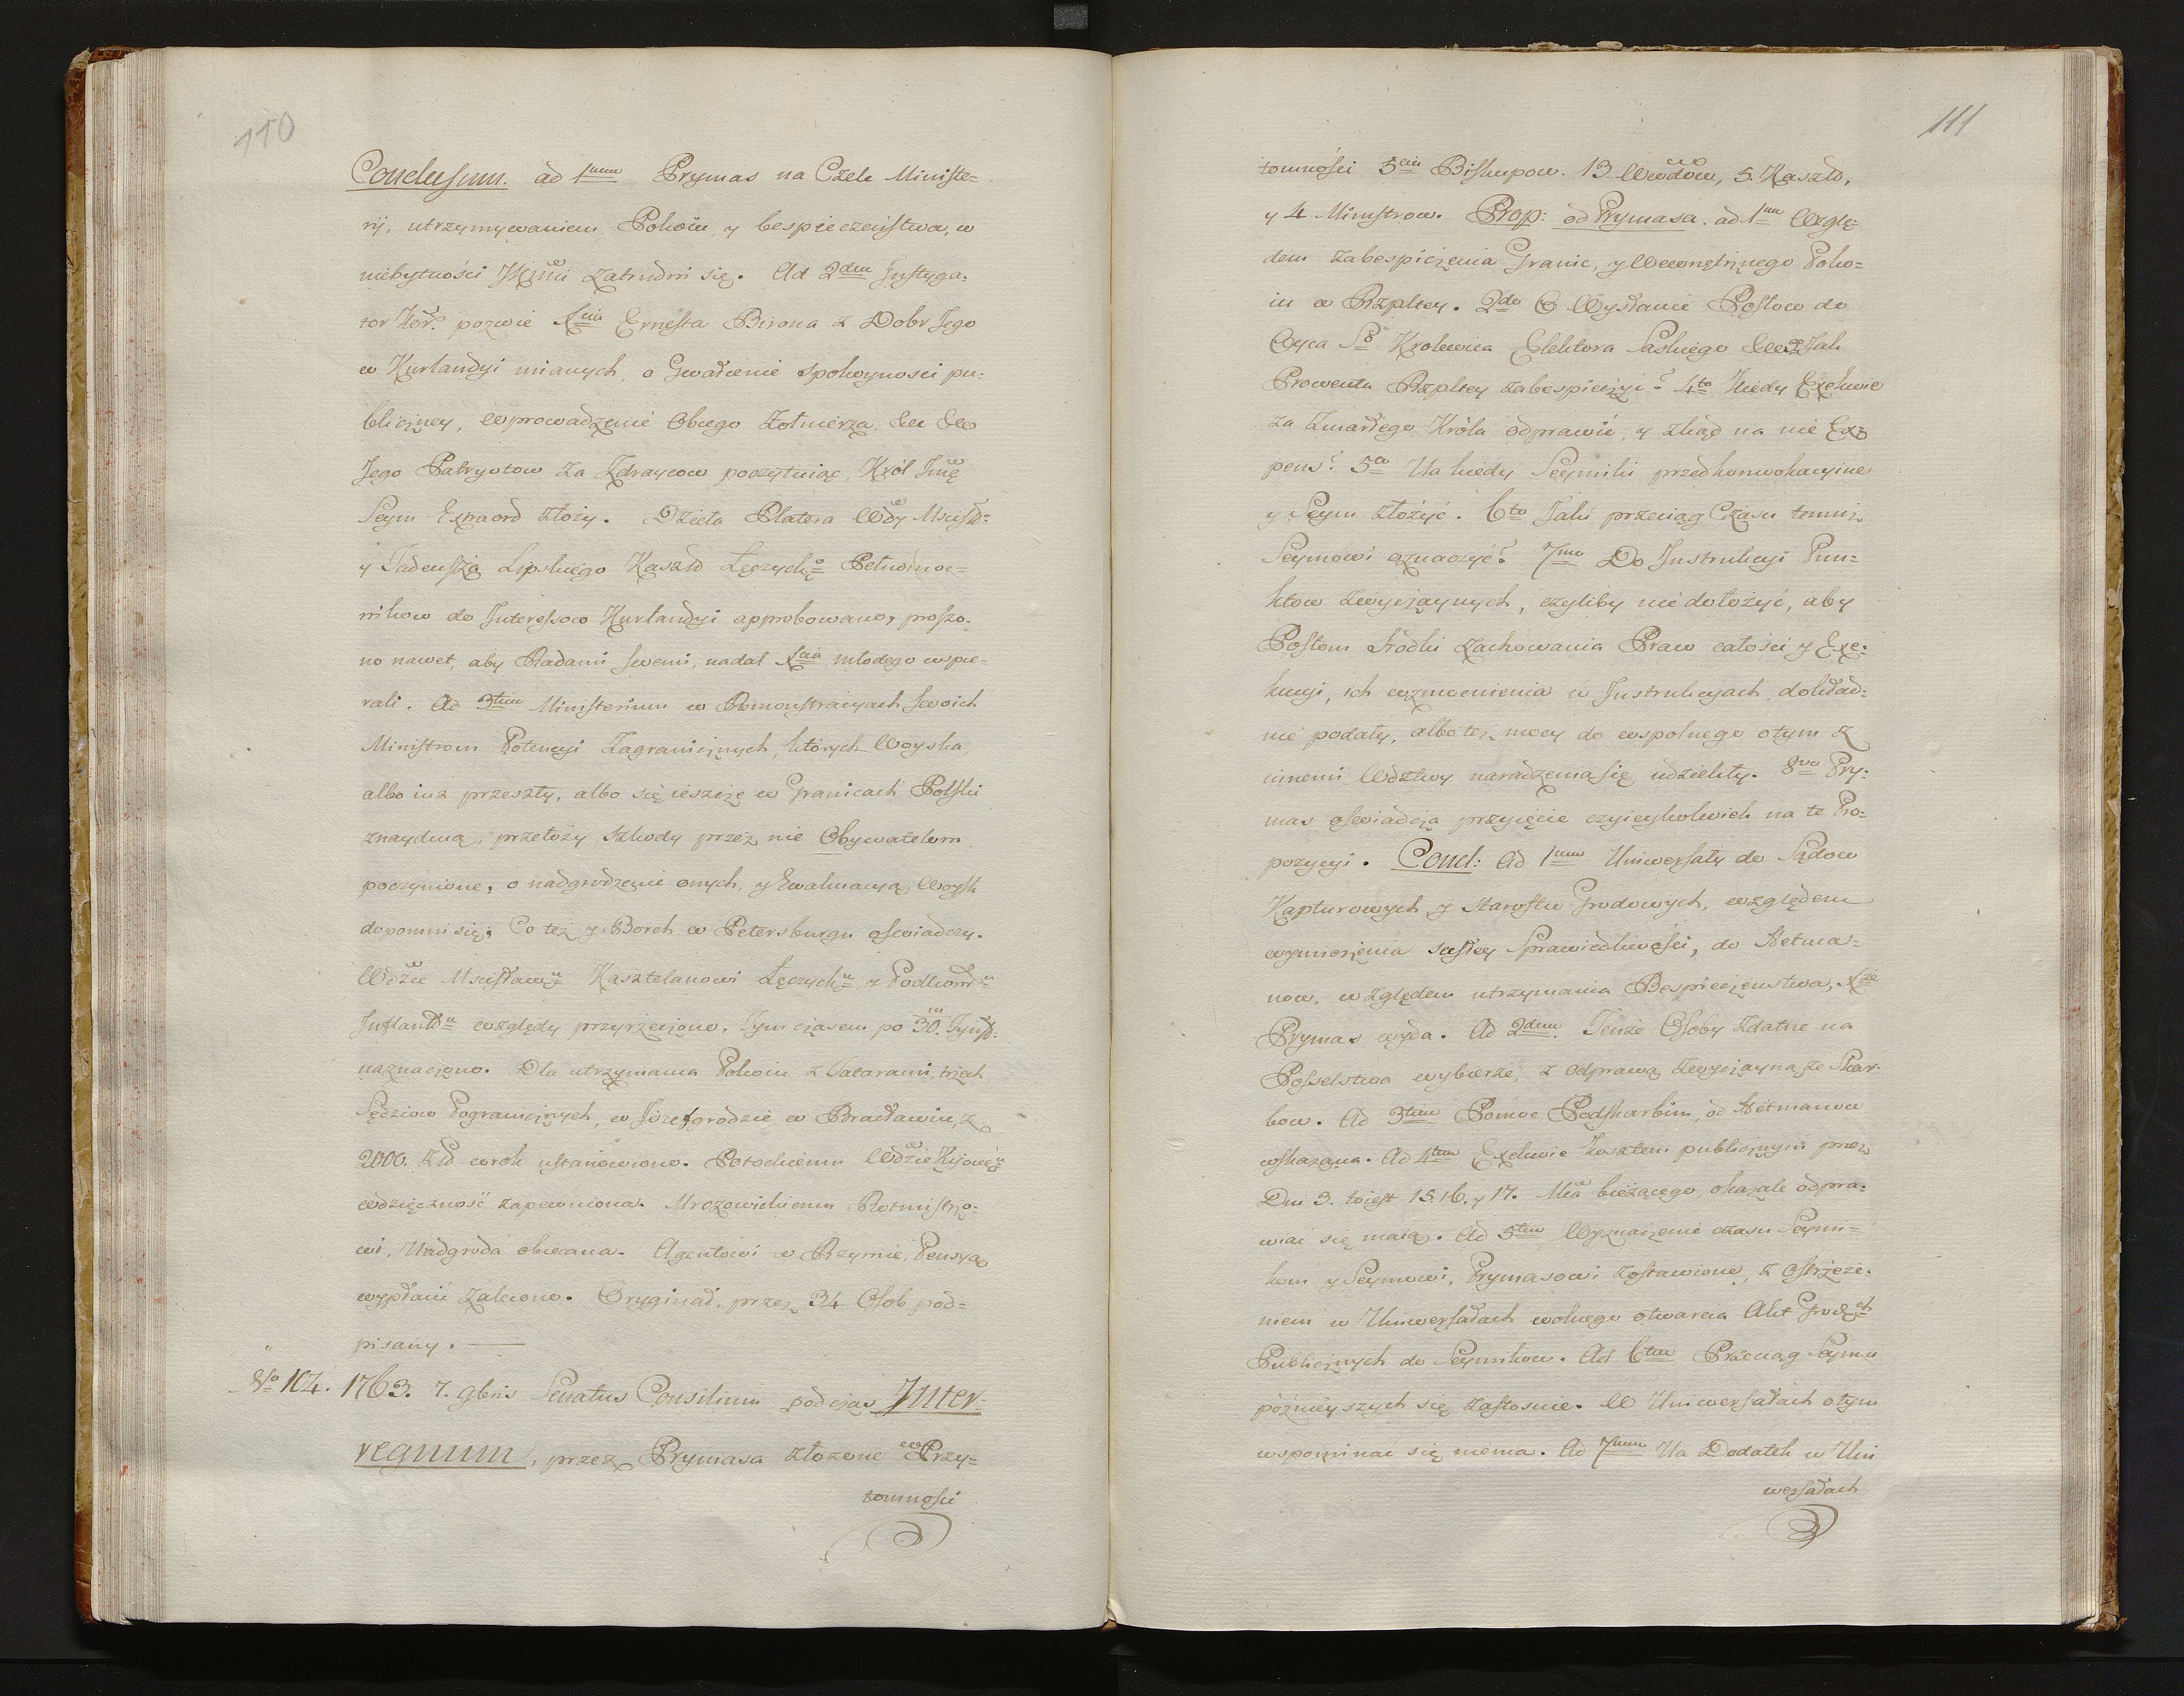 110
Conclusum. ad 1mum Prymas na Czele Ministe=
rij, utrzymywaniem Pokoiu, y bespieczeństwa, w
niebytności JKMci zatrudni się. Ad 2dum Instyga=
tor Kor. pozwie Xcia Ernesta Birona z Dobr Jego
w Kurlandyi mianych, o Gwałcenie Spokoyności pu=
bliczney, wprowadzenie Obcego Żołnierza, &c &c
Jego Patryotow za Zdraycow poczytuiąc, Król Jmć
Seym Extraord złoży. Dzieła Platera Wdy Mscisł=
y Tadeusza Lipskiego Kasztl Łęczyckgo Pełnomoc=
nikow do Interessow Kurlandyi approbowano, proszo=
no nawet, aby Radami swemi, nadal Xcia młodego wspie=
rali. Ad 3tium Ministerium w Remonstracyach swoich
Ministrom Potencyi Zagranicznych, których Woyska,
albo iuż przeszły, albo się ieszcze w Granicach Polski
znayduią, przełoży szkody przez nie Obywatelom
poczynione, o nadgrodzenie onych, y Ewakuacyą Woysk
dopomni się, Co też y Borch w Petersburgu oświadczy.
Wdzie Mscisławu Kasztelanowi Łęczycku y Podkom
Inflantu względy przyrzeczono. Tym czasem po 30. Tynf.
naznaczono. Dla utrzymania Pokoiu z Tatarami, trzech
Sędziow Pogranicznych, w Jozefgrodzie w Bracławiu, z
2000. Zł w rok ustanowiono. Potockiemu Wdzie Kijows
wdzięczność zapewniona. Mrozowickiemu Rotmistrzo=
wi, Nadgroda obiecana. Agentowi w Rzymie, Pensyą
wypłacić zalecono. Oryginał, przez 34 Osob pod=
pisany.
No 104. 1763. 7. 9bris Senatus Consilium podczas Inter=
regnum, przez Prymasa złozone w Przy=
tomności
111
tomności 5ciu Biskupow. 13. Wwdów, 5. Kasztl,
y 4 Ministrow. Prop: od Prymasa. ad 1mum Wzglę=
dem zabespieczenia Granic, y Wewnętrznego Poko=
iu w Rzpltey. 2do O Wysłanie Posłow do
Oyca So Krolewica Elektora Saskiego &c Jak
Prowenta Rzpltey zabespieczyć? 4to Kiedy Exekwie
za Zmarłego Króla odprawić, y zkąd na nie Ex=
pens? 5to Na kiedy Seymiki przedkonwokacyine
y Seym złożyć. 6to Jaki przeciąg Czasu temuż
Seymowi oznaczyć? 7mo Do Instrukcyi Pun=
ktow zwyczaynych, czyliby nie dołożyć, aby
Posłom srodki zachowania Praw całości y Exe=
kucyi, ich wzmocnienia w Instrukcyach, dokład=
nie podały, albo też mocy do wspolnego o tym z
innemi Wdztwy naradzenia się udzieliły. 8vo Pry=
mas oświadcza przyięcie czyieykolwiek na te Pro=
pozycyi. Concl: Ad 1mum Uniwersały do Sądow
Kapturowych y Starostw Grodowych, względem
wymierzenia scisłey Sprawiedliwości, do Hetma=
now, względem utrzymania Bespieczenstwa, Xże
Prymas wyda. Ad 2dum. Tenże Osoby zdatne na
Posselstwa wybierze, z odprawą zwyczayną ze Skar=
bow. Ad 3tium Pomoc Podskarbim, od Hetmanow
wskazana. Ad 4tum Exekwie kosztem publicznym przez
Dni 3. to iest 15. 16. y 17. Mca bieżącego, okazale odpra=
wiać się maią. Ad 5tum Wyznaczenie czasu Seymi=
kom y Seymowi, Prymasowi zostawione, z ostrzeże=
niem w Uniwersałach wolnego otwarcia Akt Grodzch
Publicznych do Seymikow. Ad 6tum Przeciąg Seymu
poźnieyszych się zastosuie. W Uniwersałach o tym
wspominać się niema. Ad 7mum Na Dodatek w Uni
wersałach